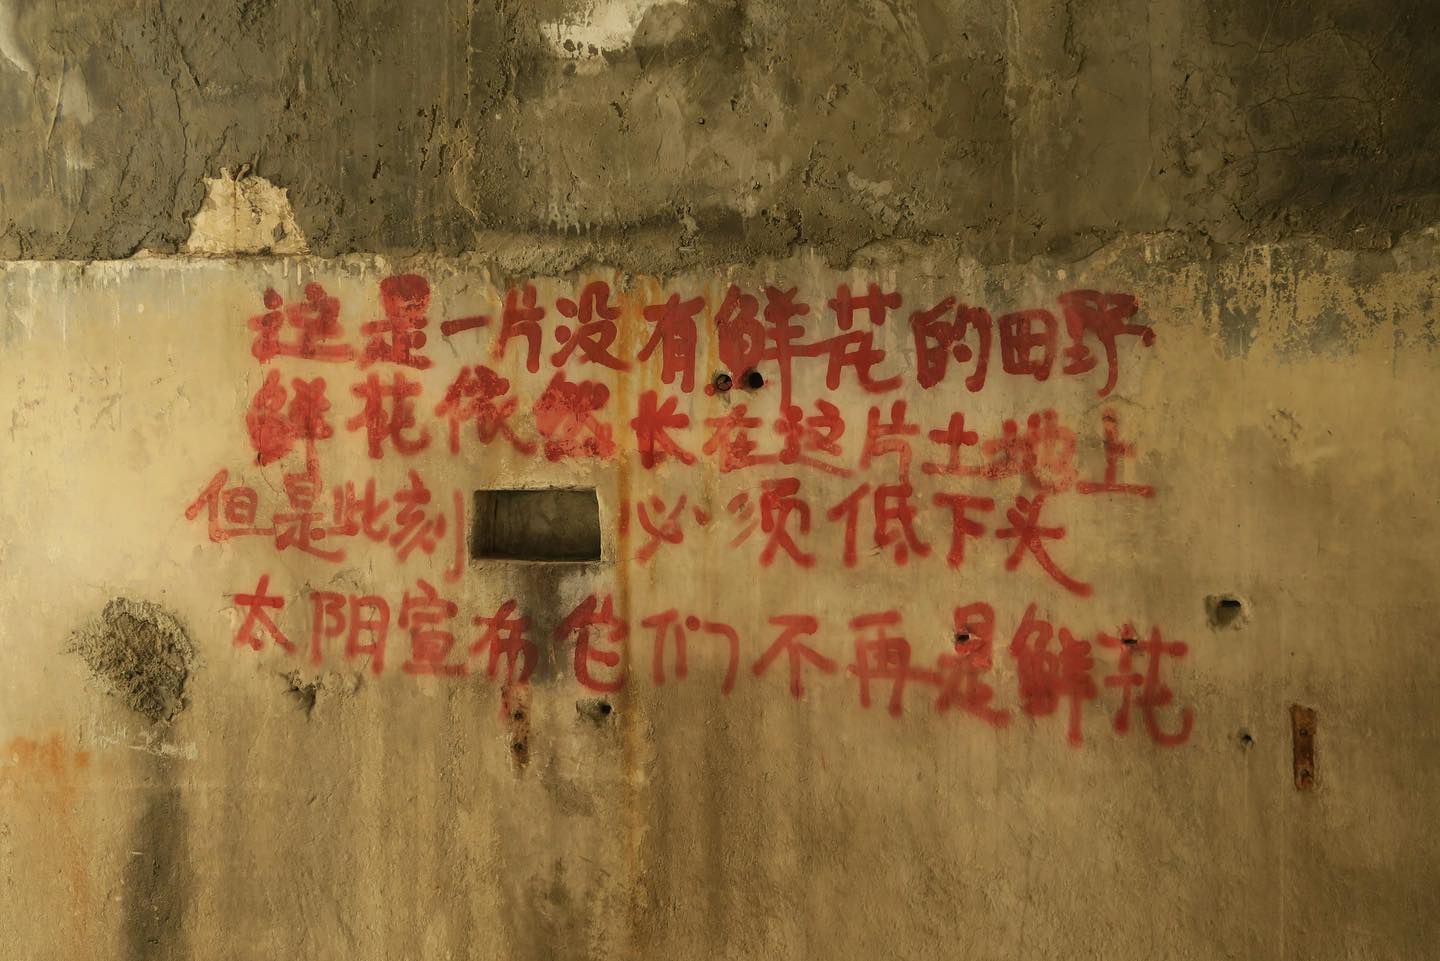 这是一片没有鲜花的田野
鲜花依然长在这片土地上
但是此刻 必须低下头
太阳宣布它们不再是鲜花